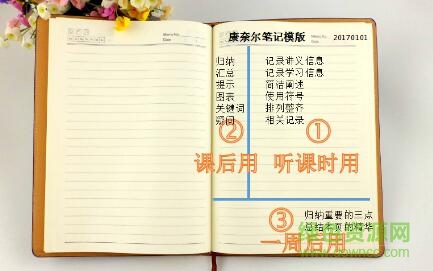 康奈尔笔记模版 20170101
归纳 记录讲义信息
汇总 记录学习信息
提示 简洁阐述
图表 使用符号
关键词 排列整齐
疑问 相关记录
② ①
课后用 听课时用
③ 归纳重要的三点
总结本页的精华
一周后用